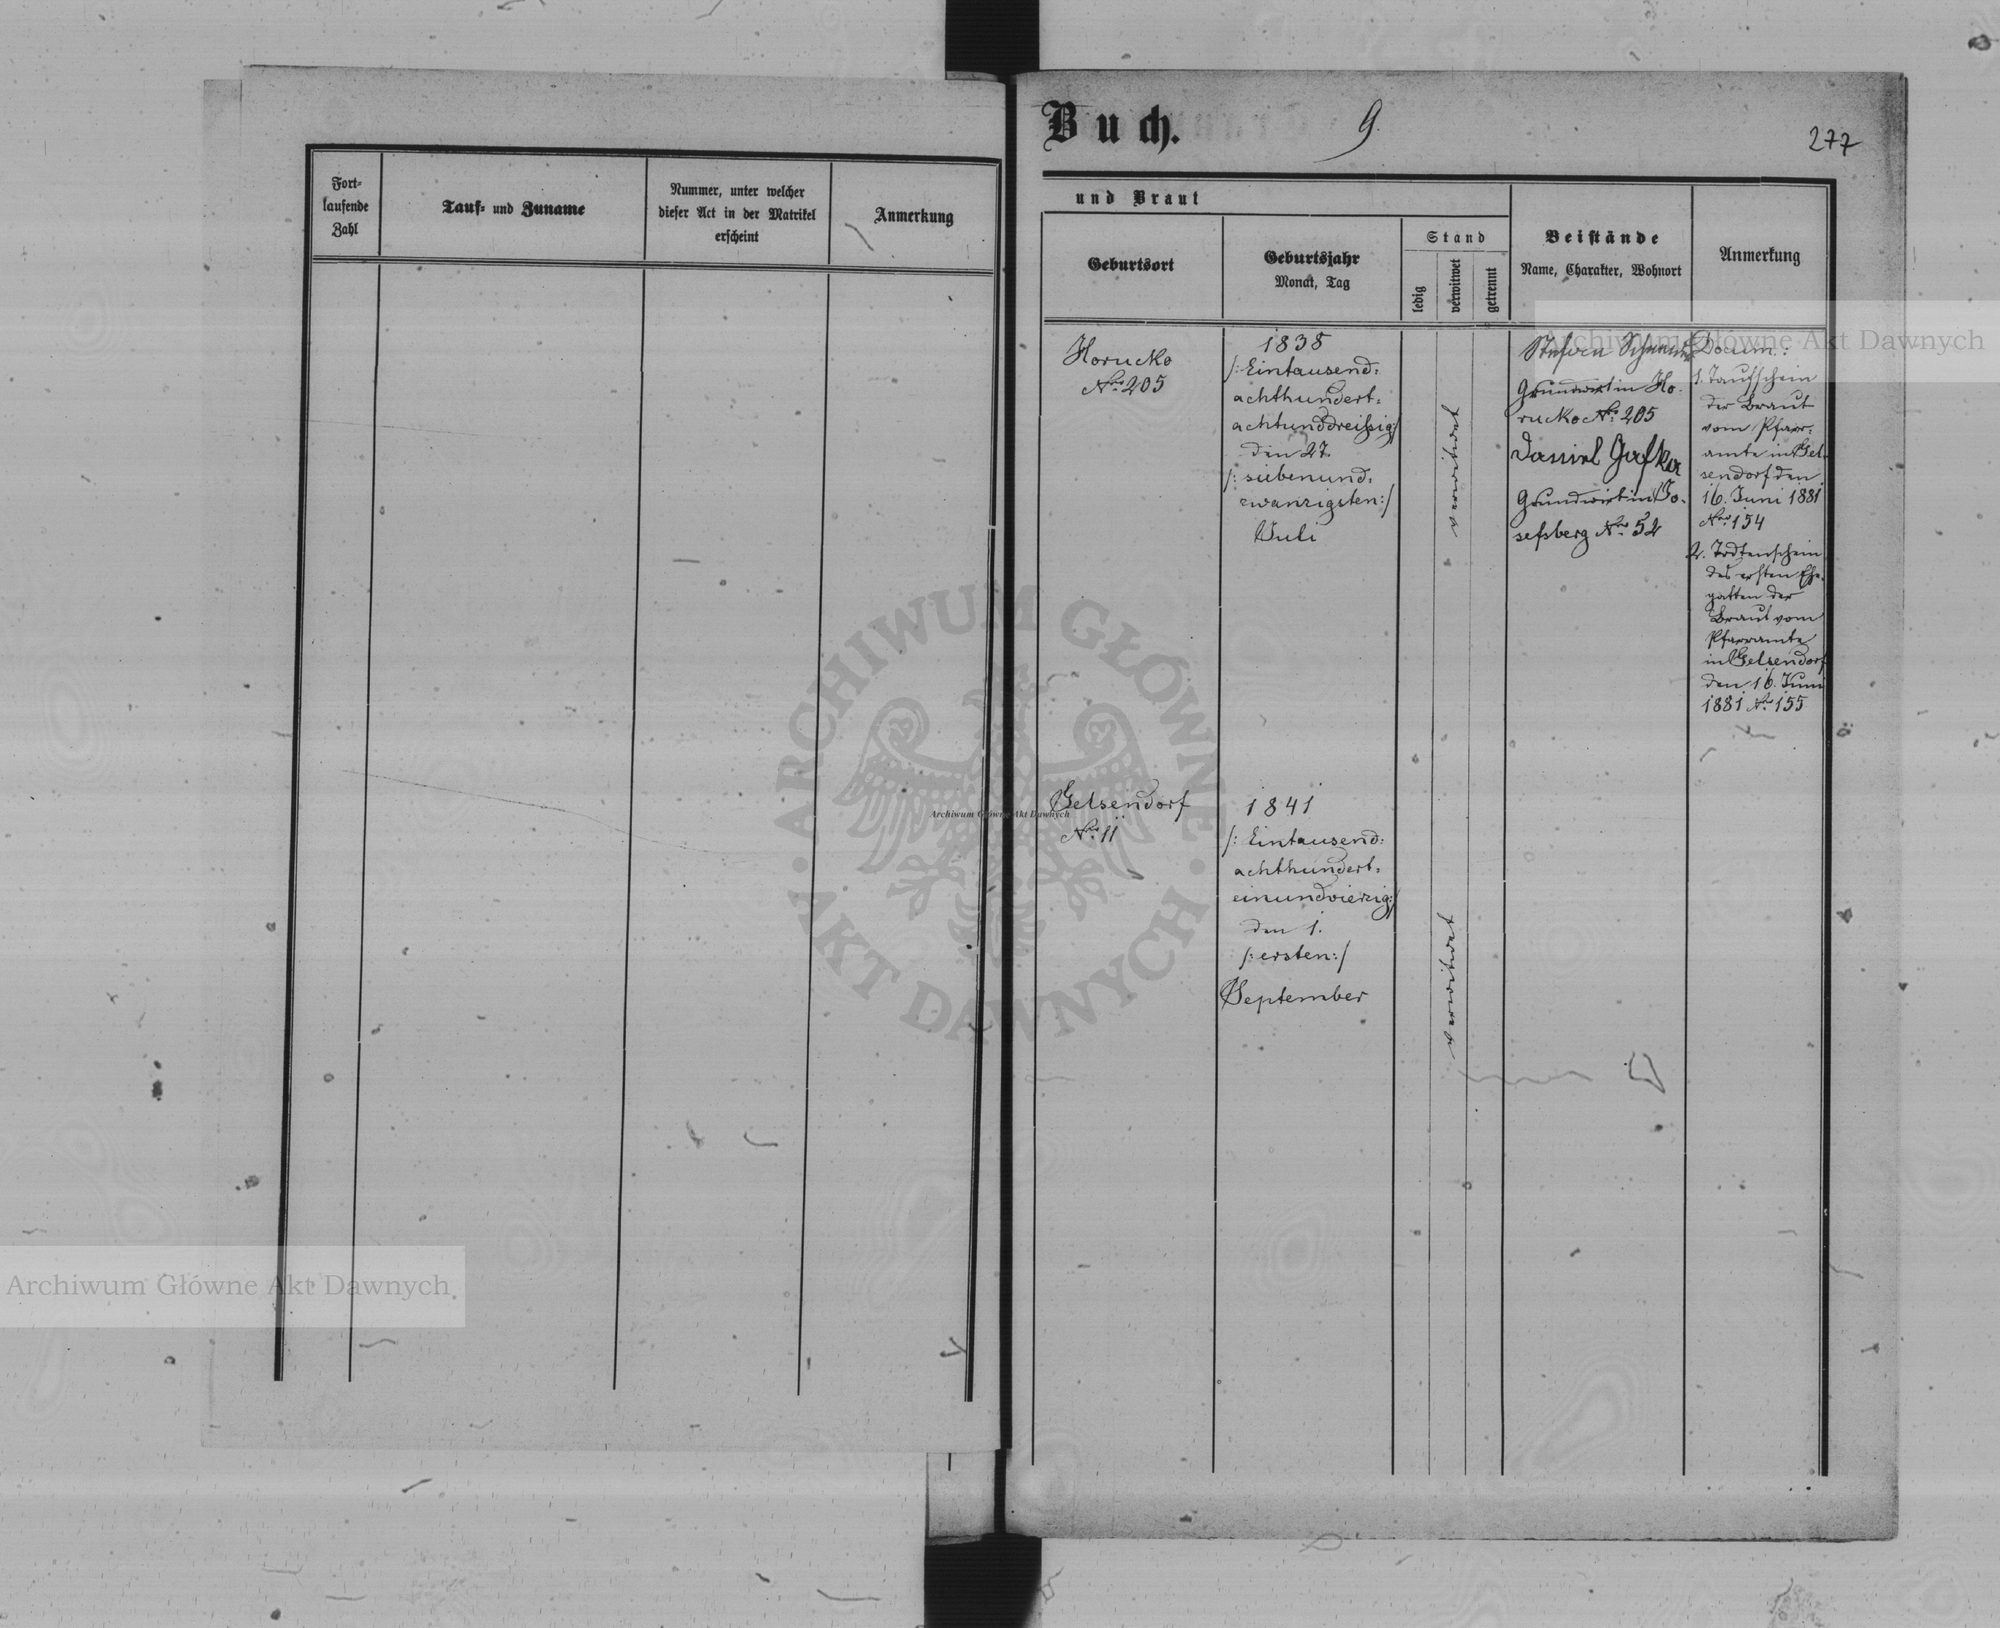 Fort-
laufende
Zahl
Tauf- und Zuname
Nummer, unter welcher
dieser Act in der Matrikel
erscheint
Anmerkung
Buch.
9.
277
und Braut
Geburtsort
Geburtsjahr
Monat, Tag
Stand
ledig
verwitwet
getrennt
Beistände
Name, Charakter, Wohnort
Anmerkung
Horucko
Nro 205
1838
/: Eintausend-
achthundert-
achtunddreißig:/
den 27.
/: siebenund-
zwanzigsten:/
Juli
verwitwet
Stefan
Grundwirt in Ho-
rucko No 205
Daniel
Grundwirt in Jo-
sefsberg No 52
Docum.:
1. Taufschein
der Braut
vom Pfarr-
amte in Gel-
sendorf den
16. Juni 1881
Nro 154
2. Todtenschein
des ersten Ehe-
gatten der
Braut vom
Pfarramte
in Gelsendorf
den 16. Juni
1881 No 155
Gelsendorf
No 11
1841
/: Eintausend-
achthundert-
einundvierzig:/
den 1.
/: ersten:/
September
verwitwet
Archiwum Główne Akt Dawnych
ARCHIWUM GŁÓWNE
· AKT DAWNYCH ·
Archiwum Główne Akt Dawnych
Archiwum Główne Akt Dawnych